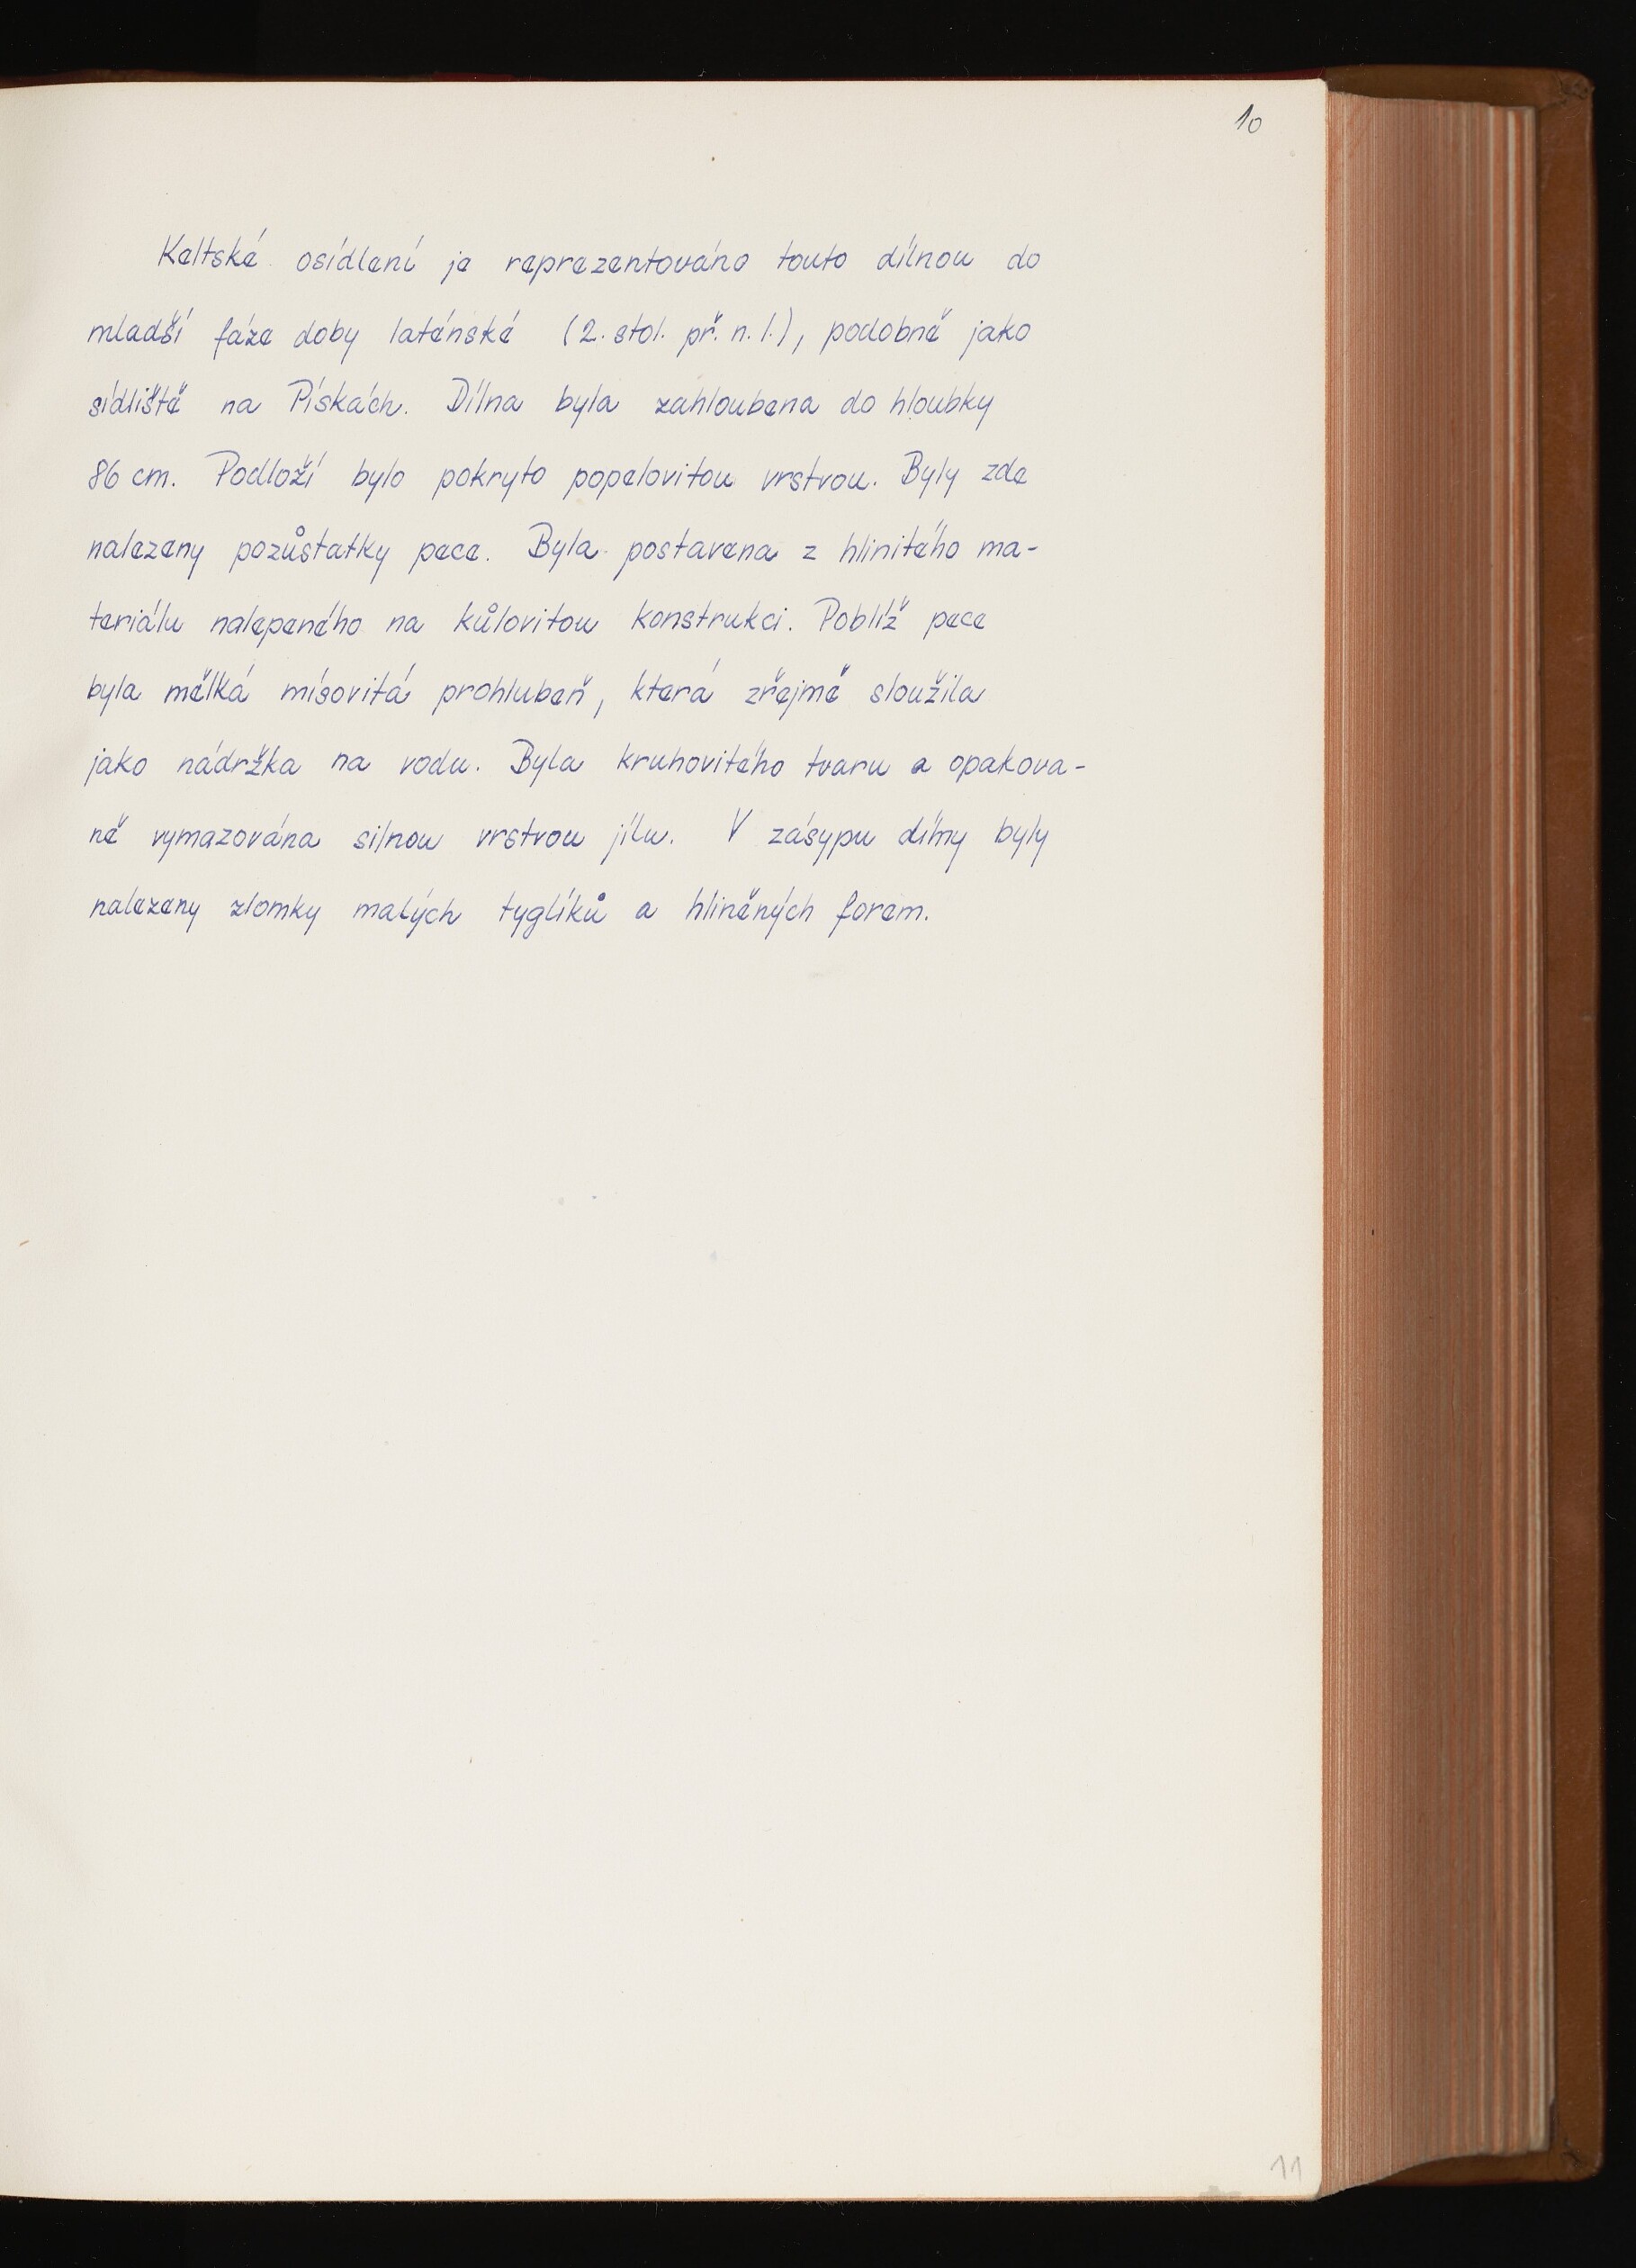 10
Keltské osídlení je reprezentováno touto dílnou do
mladší fáze doby laténské (2. stol. př. n. l.), podobně jako
sídliště na Pískách. Dílna byla zahloubena do hloubky
86 cm. Podloží bylo pokryto popelovitou vrstvou. Byly zde
nalezeny pozůstatky pece. Byla postavena z hlinitého ma-
teriálu nalepeného na kůlovitou konstrukci. Poblíž pece
byla mělká mísovitá prohlubeň, která zřejmě sloužila
jako nádržka na vodu. Byla kruhovitého tvaru a opakova-
ně vymazována silnou vrstvou jílu. V zásypu dílny byly
nalezeny zlomky malých tyglíků a hliněných forem.
11